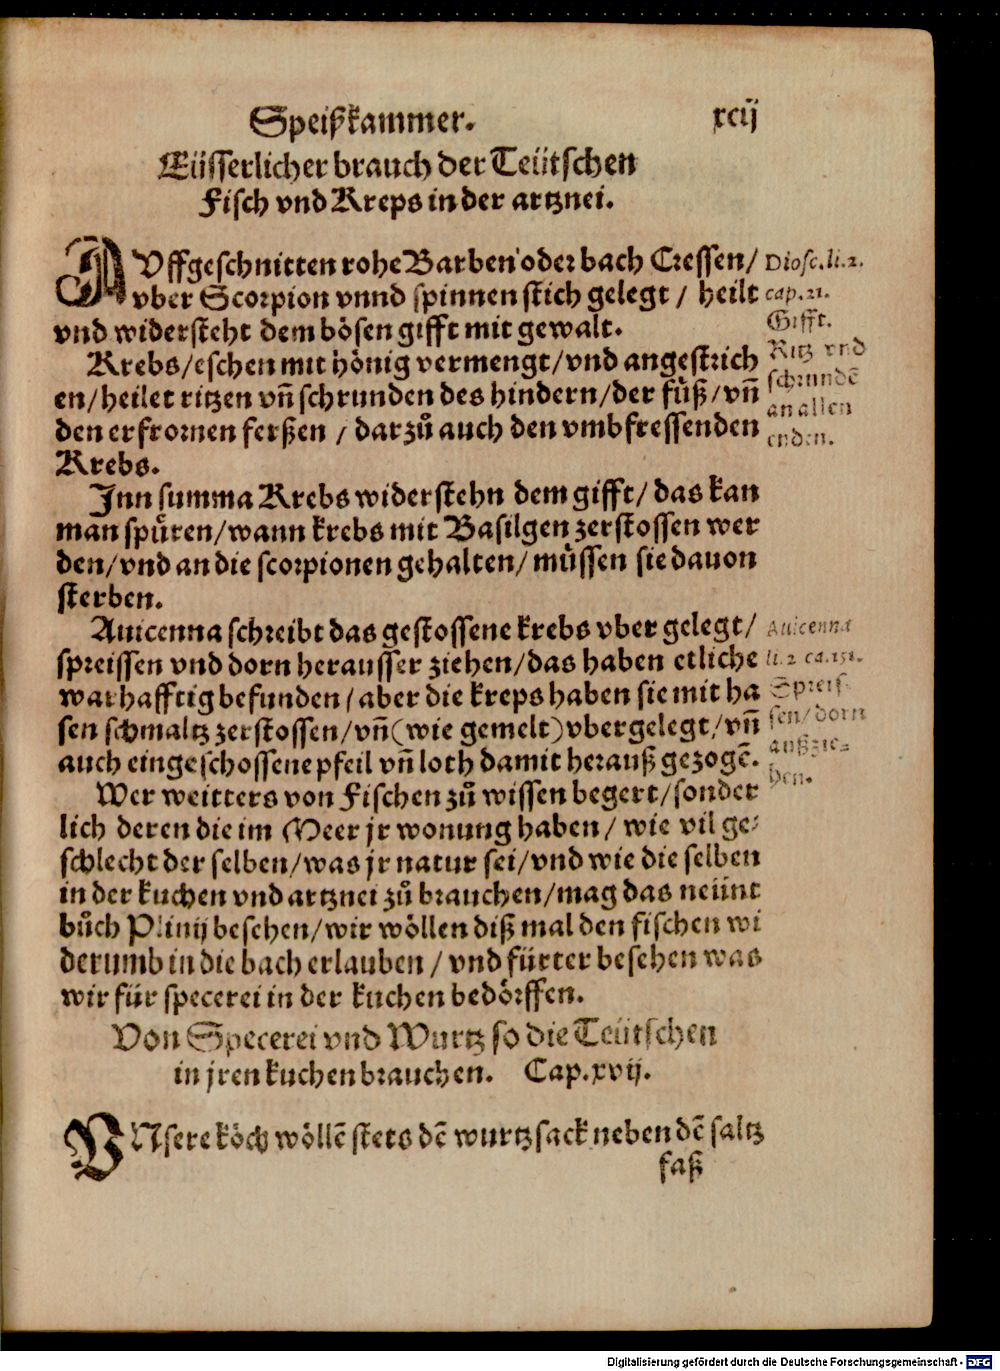 Speißkammer. xcij
Eüsserlicher brauch der Teütschen
Fisch vnd Kreps in der artznei.
AVffgeschnitten rohe Barben oder bach Cressen/
vber Scorpion vnnd spinnen stich gelegt / heilt
vnd widersteht dem bösen gifft mit gewalt.
Krebs/eschen mit hönig vermengt/vnd angestrich
en/heilet ritzen vñ schrunden des hindern/der füß/vñ
den erfrornen ferßen / darzů auch den vmbfressenden
Krebs.
Jnn summa Krebs widerstehn dem gifft/das kan
man spüren/wann krebs mit Basilgen zerstossen wer
den/vnd an die scorpionen gehalten/müssen sie dauon
sterben.
Auicenna schreibt das gestossene krebs vber gelegt/
spreissen vnd dorn herausser ziehen/das haben etliche
warhafftig befunden/aber die kreps haben sie mit ha
sen schmaltz zerstossen/vñ(wie gemelt)vbergelegt/vñ
auch eingeschossene pfeil vñ loth damit herauß gezogẽ.
Wer weitters von Fischen zů wissen begert/sonder
lich deren die im Meer jr wonung haben/ wie vil ge⸗
schlecht der selben/was jr natur sei/vnd wie die selben
in der kuchen vnd artznei zů brauchen/mag das neünt
bůch Plinij besehen/wir wöllen diß mal den fischen wi
derumb in die bach erlauben / vnd fürter besehen was
wir für specerei in der kuchen bedörffen.
Von Specerei vnd Wurtz so die Teütschen
in jren kuchen brauchen. Cap.xvij.
VNsere köch wöllẽ stets dẽ wurtzsack neben dẽ saltz
faß
Diosc.li.2.
cap.21.
Gifft.
Ritz vnd
schrundẽ
an allen
enden.
Auicenna
li.2 ca.151.
Spreis⸗
sen/dorn
außzie⸗
hen.
Digitalisierung gefördert durch die Deutsche Forschungsgemeinschaft - DFG